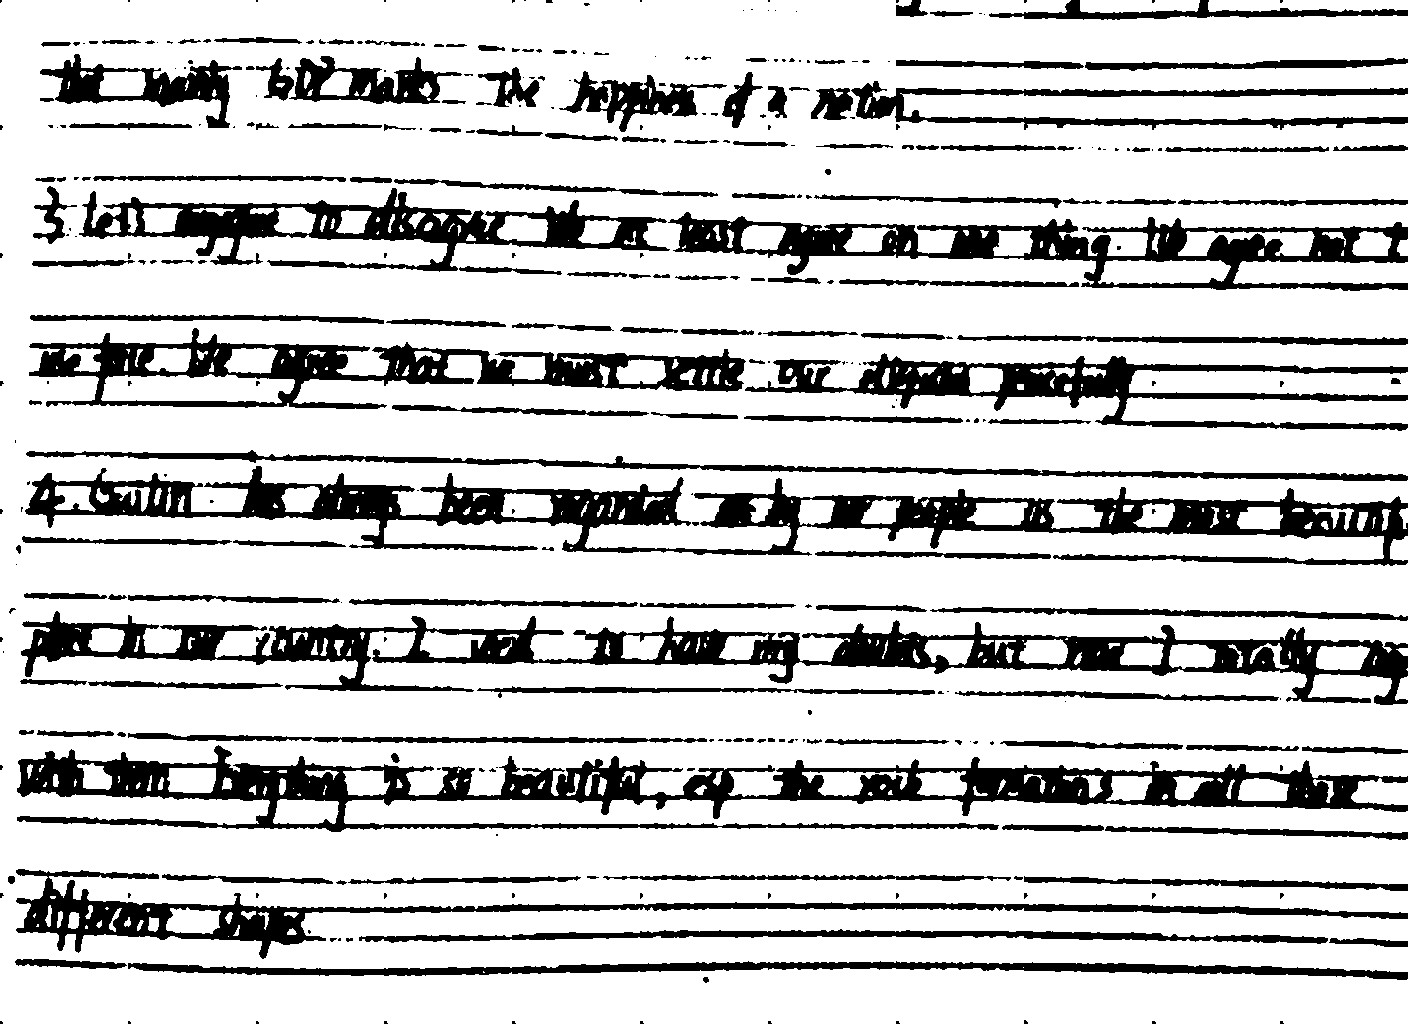 that many GDP makes the happiness of a nation.
3 Let's agree to disagree We at least agree on one thing We agree not t
We agree that we must settle our disputes peacefully
4. Guilin has always been regarded as by our people as the most beautiful
place in our country. I used to have my doubts, but now I totally agree
with them Everything is so beautiful, esp the rock formations in all those
different shapes